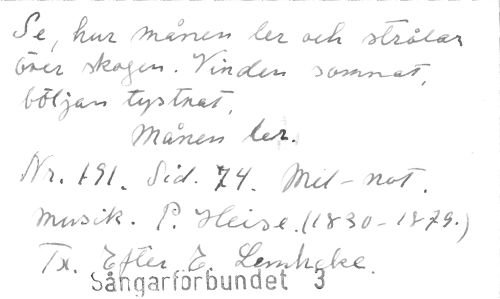 Se, hur månen ler och strålar
över skogen. Vinden somnat,
böljan tystnat,
Månen ler.
Nr. 191. Sid. 74. Mel-not.
musik. P. Heise. (1830-1879.)
Tx. Efter E. Lembcke.
Sångarförbundet 3